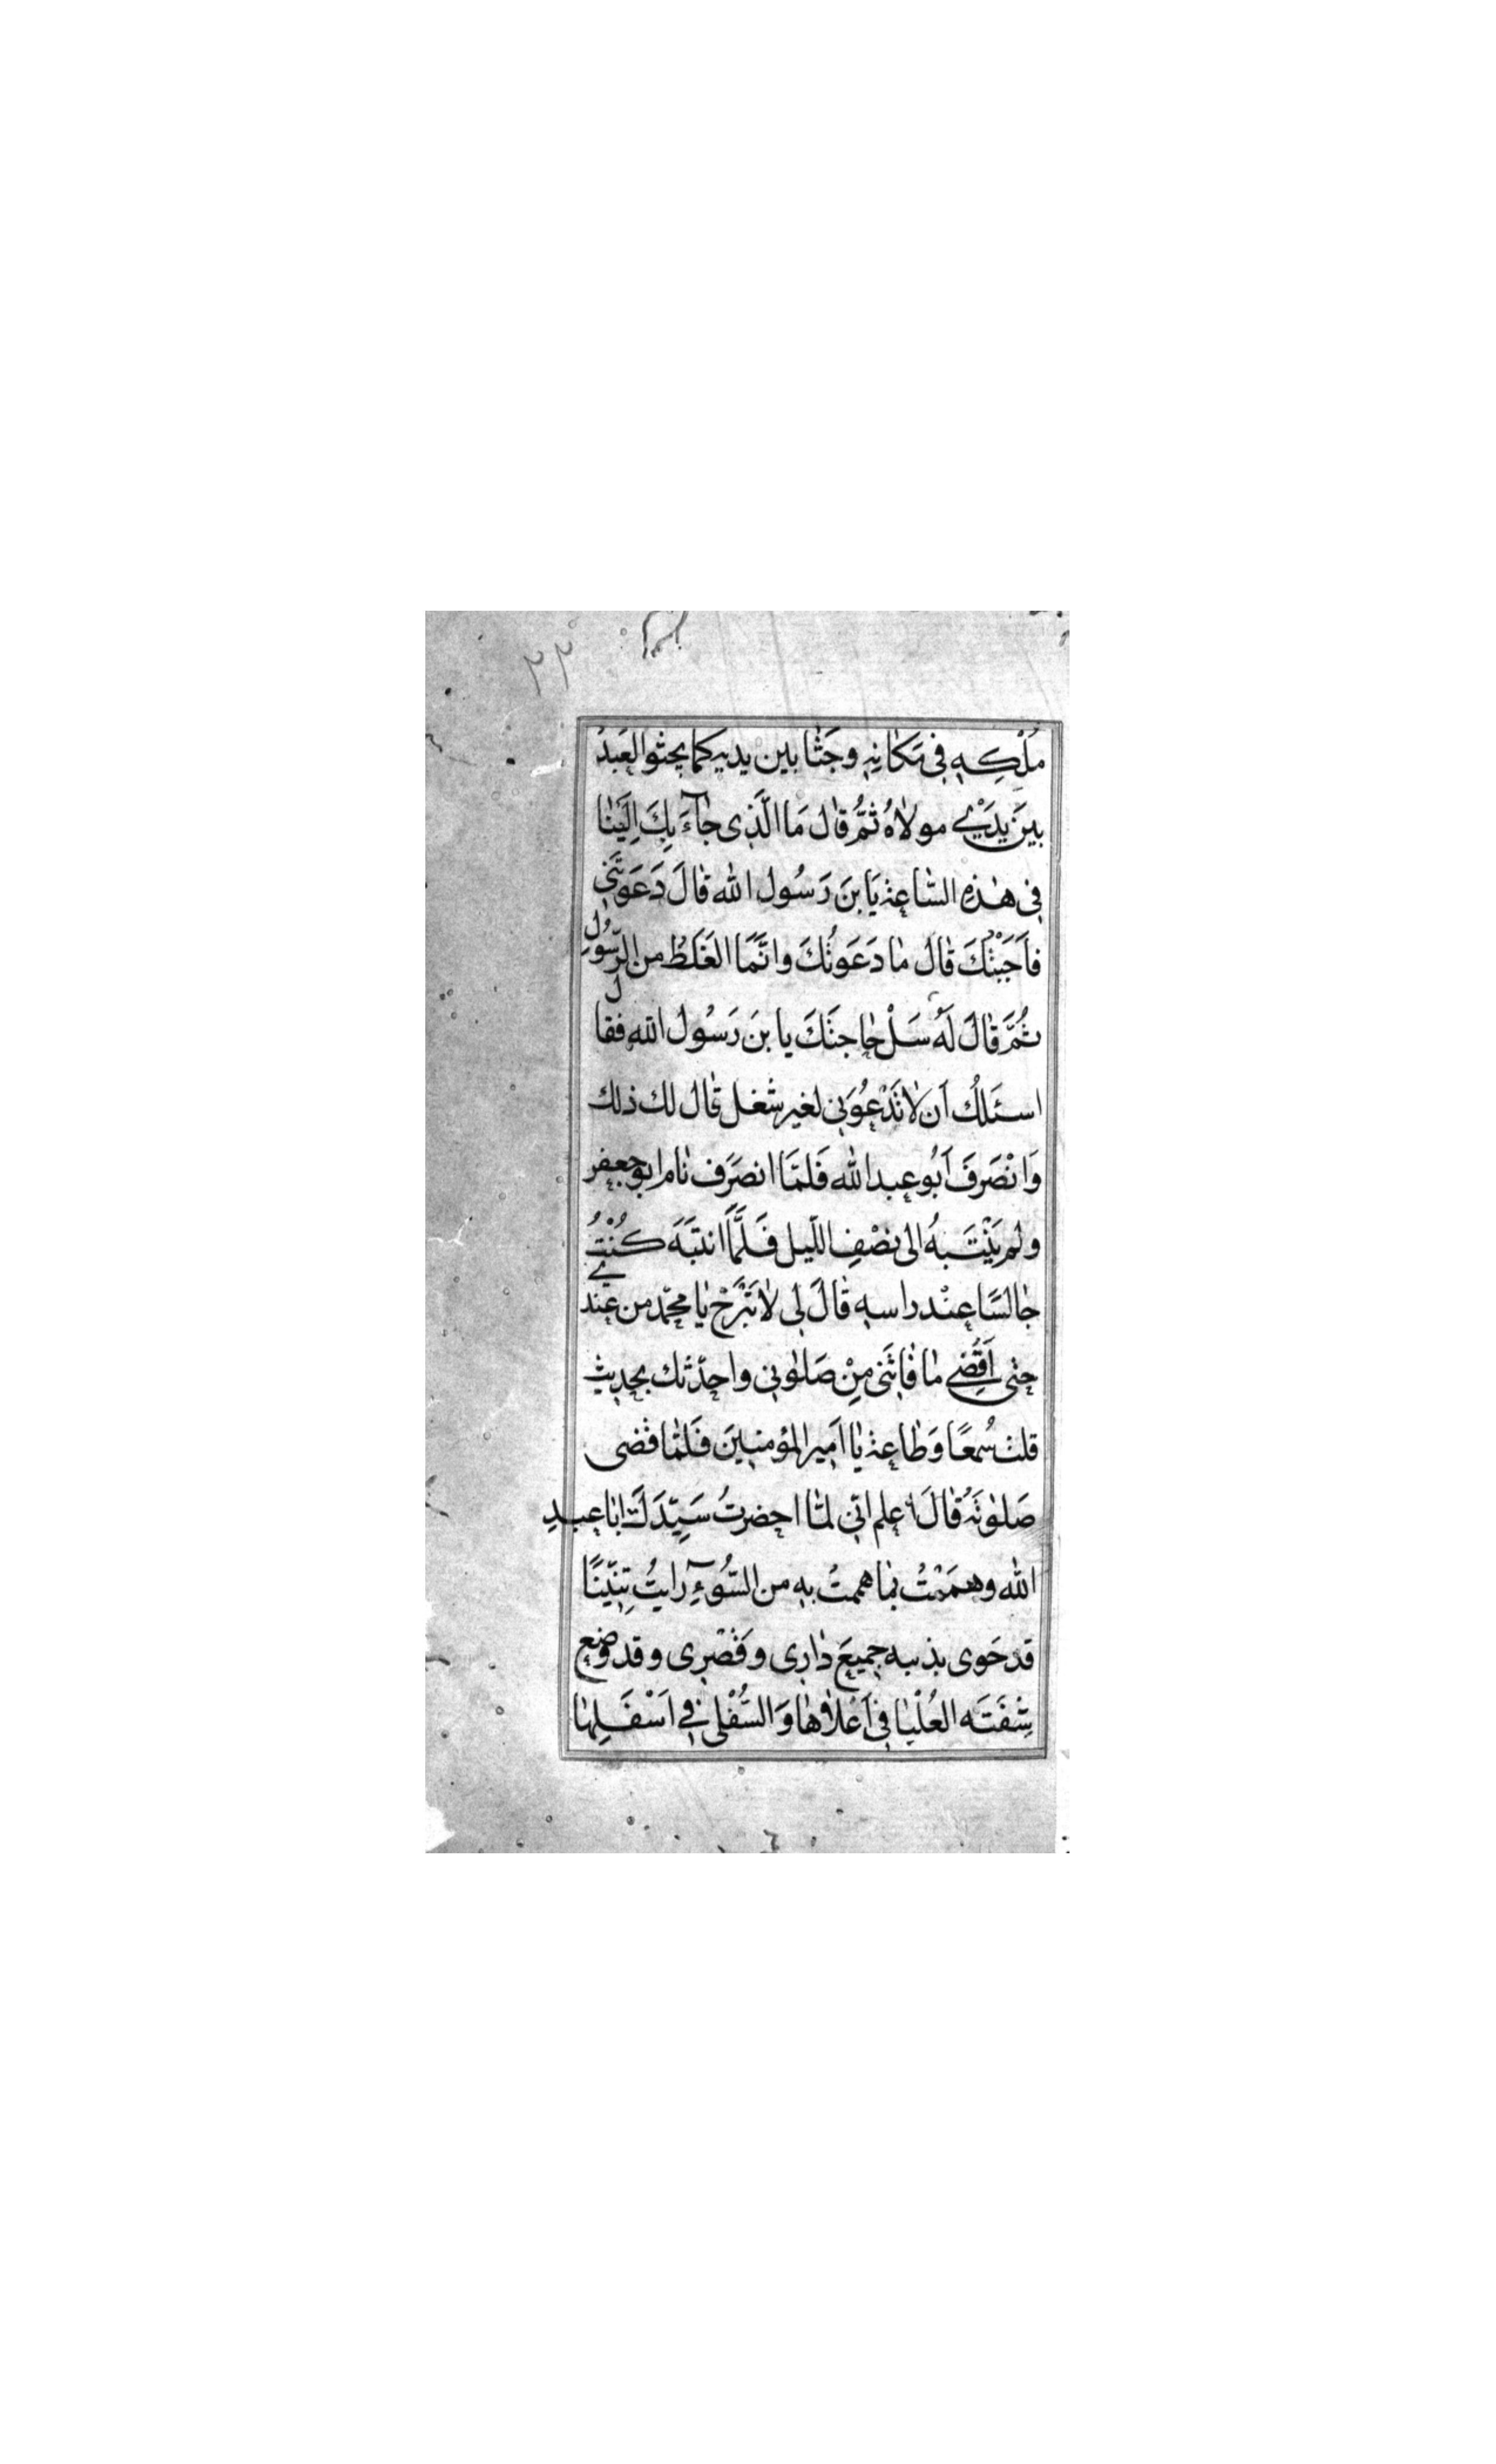 ٢٣
مُلْكِهِ فِی مَكانِهِ وجَثا بین یدیه كما یجثوا العَبدُ
بینَ یَدَیْ مولاهُ ثمُّ قال مَا الّذِی جآءَ بِكَ اِلَیْنا
فِی هٰذِهِ السّاعة یَا بنَ رَسُول الله قالَ دَعَوتَنی
فاَجَبْتُكَ قالَ ما دَعَوتُكَ وانَّمَا الغَلَطُ من الرّسُولِ
ثُمَّ قالَ لَهُ سَلْ حاجتَكَ یا بنَ رَسُول اللهِ فقال
اسئَلُك اَن لا تَدْعُوَنی لغیر شغل قال لك ذلك
وَانْصَرفَ اَبُو عبد الله فَلمّا انصَرَف نام ابو جعفر
ولم یَنْتَبهُ الی نصْفِ اللّیل فَلَمَّا انتبَهَ كُنْتُ
جالسًا عِنْد راسهِ قالَ لی لا تَبْرَحْ یا محمّد من عِندی
حتی اَقضِے ما فاتَنی مِنْ صَلوتی واحدّثك بحدیث
قلت سَمعًا وَطاعة یا امَیر المؤمنینَ فَلمّا قضی
صَلوتَهُ قالَ اعلم انّی لمّا احضرتُ سَیِّدَكَ اباعبدِ
الله وهمَمْتُ بما هممتُ به من السُّوءِٓ رایتُ تِنّینًا
قد حَوی بذنبه جمیعَ دارِی وقَصْرِی وقد وضع
شِفَتَه العُلْیا فی اَعْلاها وَالسُّفْلی فی اَسْفَلِها